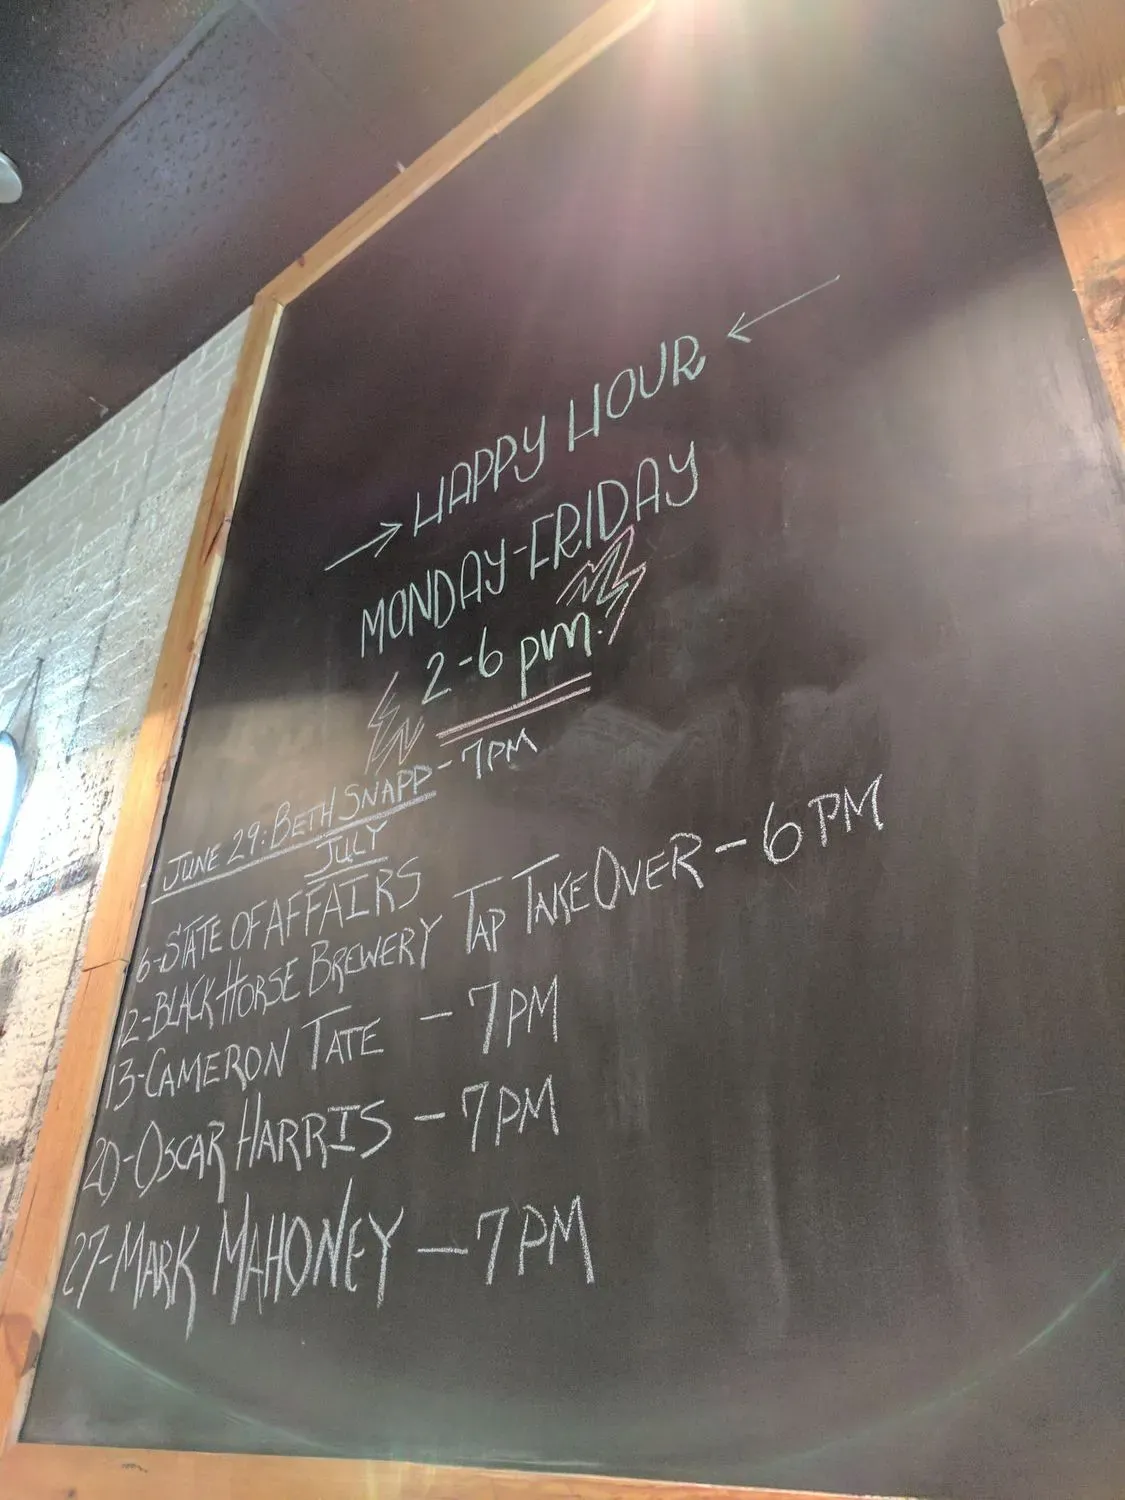 → HAPPY HOUR ←
MONDAY-FRIDAY
2-6 pm.
JUNE 29: BETH SNAPP - 7PM
JULY
6-STATE OF AFFAIRS
12-BLACK HORSE BREWERY TAP TAKEOVER - 6PM
13-CAMERON TATE - 7PM
20-OSCAR HARRIS - 7PM
27-MARK MAHONEY - 7PM